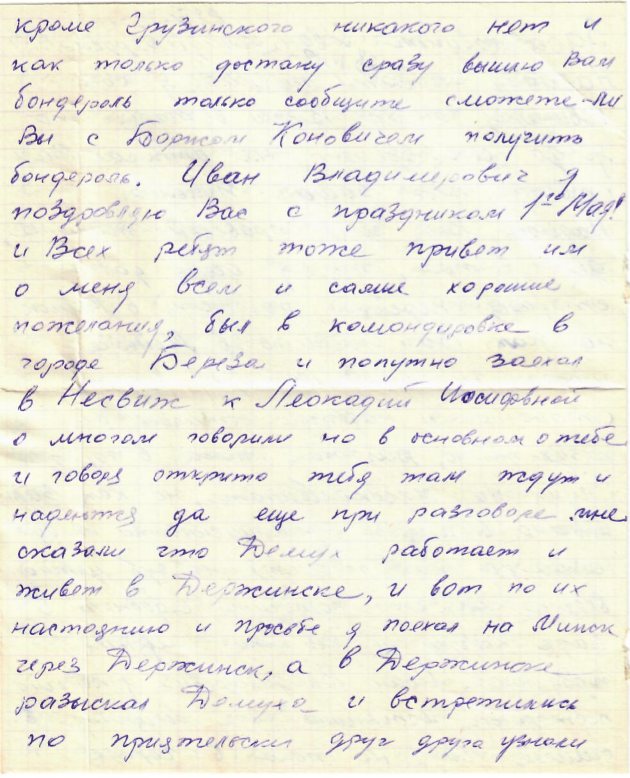 кроме Грузинского никакого нет и
как только достану сразу вышлю Вам
бондероль только сообщите сможете-ли
Вы с Боржом Коновичем получить
бондероль. Иван Владимерович я
поздровляю Вас с праздником 1го Мая!
и Всех ребят тоже привет им
о меня всем и самые хорошие
пожелания, был в командировке в
городе Береза и попутно заехал
в Несвиж к Леокадий Иосифовной
о многом говорили но в основном о тебе
и говоря открыто тебя там ждут и
надеются да еще при разговоре мне
сказали что Демух работает и
живет в Держинске, и вот по их
настоянию и просьбе я поехал на Минск
через Держинск, а в Держинске
разыскал Демуха и встретились
по приятельски друг друга узнали